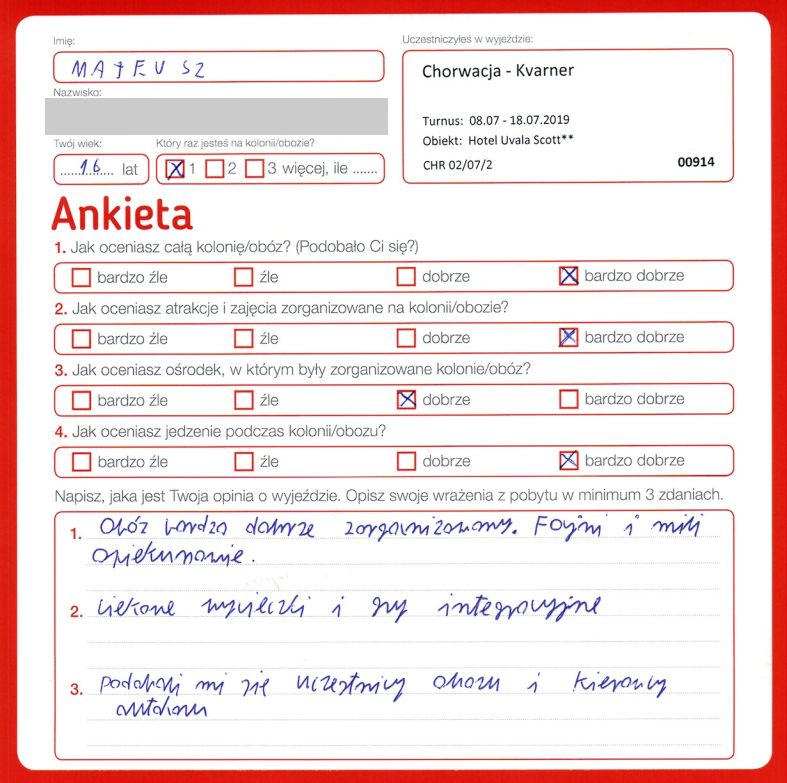 Imię:
MATEUSZ
Nazwisko:
Twój wiek:
16 lat
Który raz jesteś na kolonii/obozie?
1 2 3 więcej, ile .......
Uczestniczyłeś w wyjeździe:
Chorwacja - Kvarner
Turnus: 08.07 - 18.07.2019
Obiekt: Hotel Uvala Scott**
CHR 02/07/2 00914
Ankieta
1. Jak oceniasz całą kolonię/obóz? (Podobało Ci się?)
bardzo źle źle dobrze bardzo dobrze
2. Jak oceniasz atrakcje i zajęcia zorganizowane na kolonii/obozie?
bardzo źle źle dobrze bardzo dobrze
3. Jak oceniasz ośrodek, w którym były zorganizowane kolonie/obóz?
bardzo źle źle dobrze bardzo dobrze
4. Jak oceniasz jedzenie podczas kolonii/obozu?
bardzo źle źle dobrze bardzo dobrze
Napisz, jaka jest Twoja opinia o wyjeździe. Opisz swoje wrażenia z pobytu w minimum 3 zdaniach.
1. Obóz bardzo dobrze zorganizowany. Fajni i mili
opiekunowie.
2. Ciekawe wycieczki i gry integracyjne
3. Podobali mi się uczestnicy obozu i kierowcy
autokaru